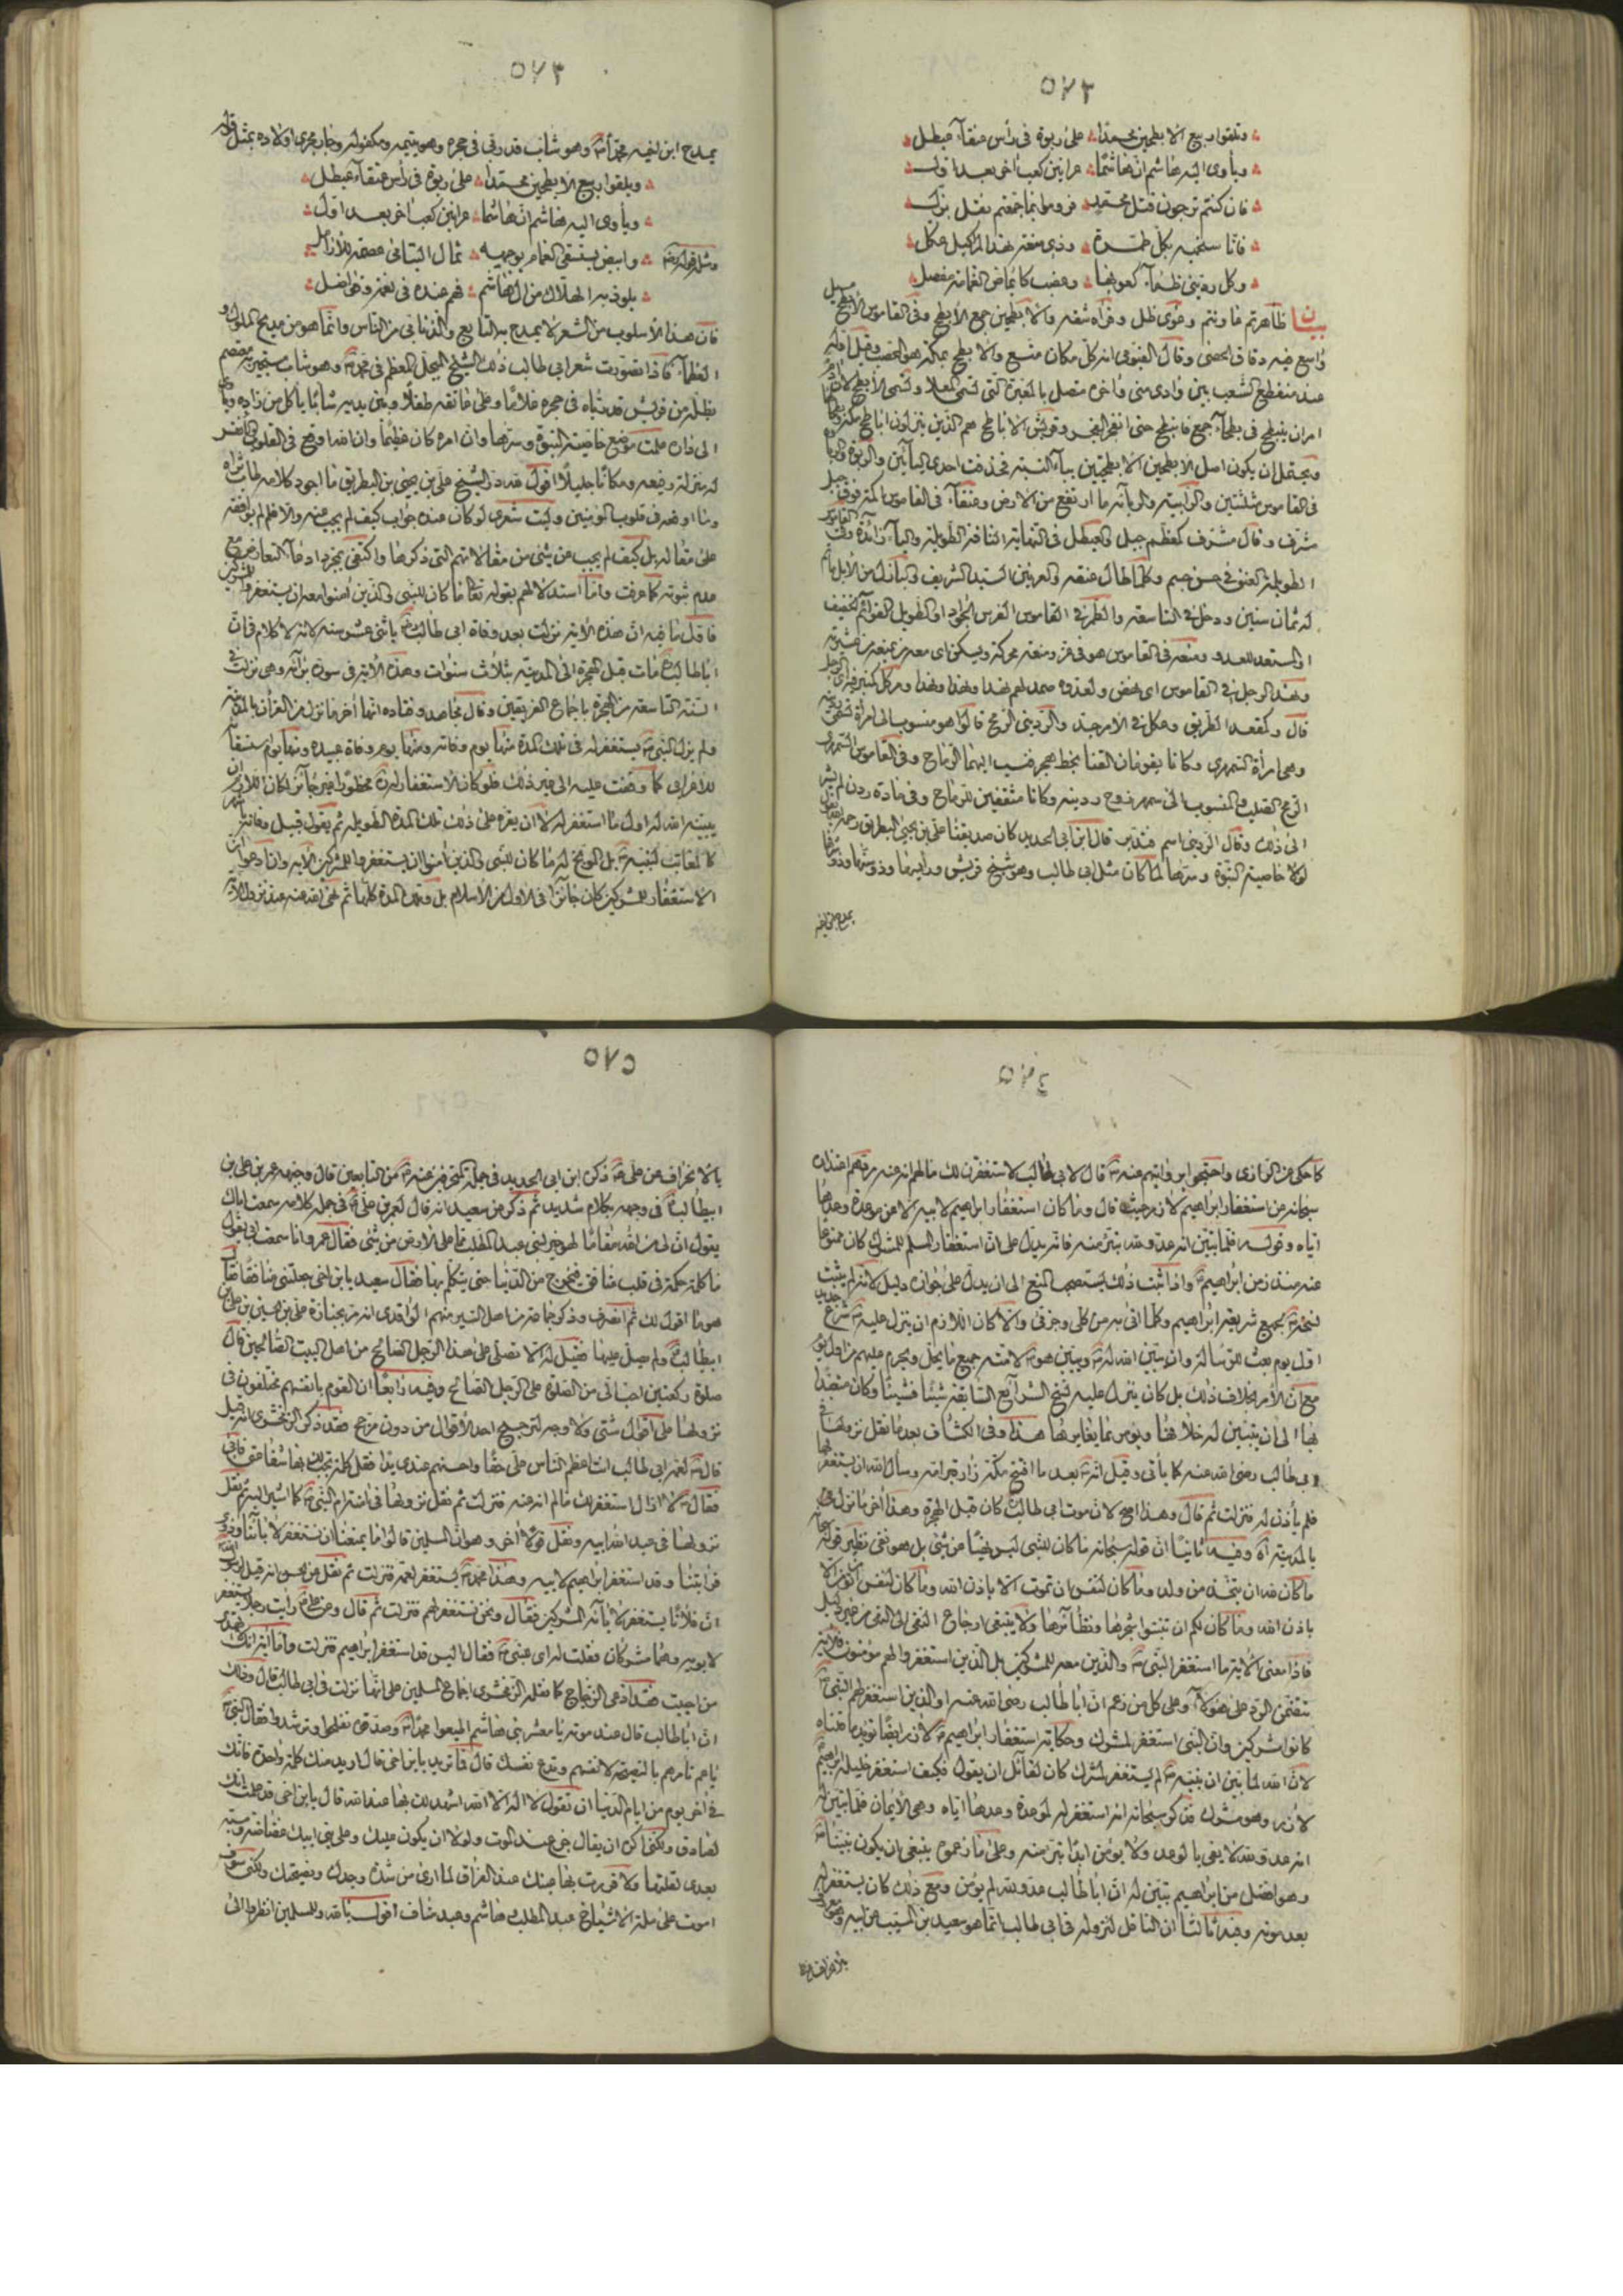 ٥٧٢
وتلقوا ربيع الابطحين محمدا على ربوة فى رأس عنقاء عيطل
ويأوى اليه هاشم ان هاشما عرانين كعب آخر بعد اول
فان كنتم ترجون قتل محمد فروموا بما جمعتم نقل يذبل
فانا سنحميه بكل طمرة وذى ميعة نهد المراكل هيكل
وكل ردينى ظماء كعوبها وعضب كايماض الغمامة مفصل
بيان ظاهرتم عاونتم وغوى ضل وفراه شقه والابطحين جمع الأبطح وفى القاموس الأبطح مسيل
واسع فيه دقاق الحصى وقال الفيومى انه كل مكان متسع والابطح بمكة هو المحصب وقيل
عند منقطع الشعب بين وادى منى واخره متصل بالمقبرة التى تسمى المعلا وتسمى الأبطح
ويحتمل ان يكون اصل الابطحين الابطحيين بياء النسبة فحذفت احدى اليائين والربوة
فى القاموس مثلثتين والرابية والرباة ما ارتفع من الارض وعنقاء فى القاموس اكمة فوق جبل
مشرف وقال مشرف كمعظم جبل والعيطل فى النهاية الناقة الطويلة والياء زائدة وفى القاموس
الطويلة العنق فى حسن جسم وكلما طال عنقه والعرنين السيد الشريف والبازل من الابل ما تم
له ثمان سنين ودخل فى التاسعة والطمر فى القاموس الفرس الجواد او الطويل القوائم الخفيف
او المستعد للعدو
ونهد الرجل فى القاموس اى نهض ولعدوه صمد لهم نهدا ونهدا
قال وكمقعد الطريق وهكل فى الامر جد والردينى الرمح قالوا هو منسوب الى امرأة تسمى ردينة
وهى امرأة السمهرى وكانا يقومان القنا بخط هجر فنسب اليهما الرماح وفى القاموس السمهرى
الرمح الصليب والمنسوب الى سمهر زوج ردينة وكانا مثقفين للرماح وفى مادة ردن لم يشر
الى ذلك وقال الردينى اسم قال ابن ابى الحديد كان صديقنا على بن يحيى البطريق رحمه الله يقول
لولا خاصية النبوة وسرها لما كان مثل ابى طالب وهو شيخ قريش ورئيسها وذو شرفها
يمدح ابن اخيه
٥٧٣
يمدح ابن اخيه محمدا وهو شاب قد ربى فى حجره وهو يتيمه ومكفوله وجار مجرى اولاده بمثل قوله
وتلقوا ربيع الابطحين محمدا على ربوة فى رأس عنقاء عيطل
ويأوى اليه هاشم ان هاشما عرانين كعب آخر بعد اول
ومثل قوله وابيض يستسقى الغمام بوجهه ثمال اليتامى عصمة للارامل
يلوذ به الهلاك من آل هاشم فهم عنده فى نعمة وفواضل
فان هذا الأسلوب من الشعر لا يمدح به التابع والذنابى من الناس وانما هو من مديح الملوك و
العظماء فاذا تصورت شعر ابى طالب ذلك الشيخ المبجل المعظم فى محمد وهو شاب مستجير به معتصم
بظله من قريش قد رباه فى حجره غلاما وعلى عاتقه طفلا وبين يديه شابا يأكل من زاده ويأوى
الى داره علمت موضع خاصية النبوة وسرها وان امره كان عظيما وان الله اوقع فى القلوب والأنفس
له منزلة رفيعة ومكانا جليلا اقول هذا الشيخ على بن يحيى بن البطريق ما اجود كلامه
وما اوقعه فى قلوب المؤمنين وليت شعرى لو كان عنده جواب كيف لم يجب عنه والا فلم لم يوافقه
على مقاله بل كيف لم يجب عن شئ من مقالاتهم التى ذكرها واكتفى بمجرد ادعاء التعارض مع
عدم ثبوته كما عرفت واما استدلالهم بقوله تعالى ما كان للنبى والذين آمنوا معه ان يستغفروا للمشركين
فاقول ما فيه ان هذه الآية نزلت بعد وفاة ابى طالب باثنى عشر سنة لانه لا كلام فى ان
اباطالب مات قبل الهجرة الى المدينة بثلاث سنوات وهذه الآية فى سورة براءة وهى نزلت فى
السنة التاسعة من الهجرة باجماع الفريقين وقال مجاهد وقتادة انها آخر ما نزل من القرآن بالمدينة
ولم يزل النبى يستغفر له فى تلك المدة منها يوم وفاته ومنها يوم وفاة عبيدة ومنها يوم استسقاء
للاعرابى كما وقفت عليه الى غير ذلك فلو كان الاستغفار له محظورا غير جائز لكان اللازم ان
يبينه الله له اول ما استغفر له لا ان يقره على ذلك تلك المدة الطويلة ثم يقول قبيل وفاته
كالمعاتب لنبيه بل الموبخ له ما كان للنبى والذين آمنوا ان يستغفروا للمشركين الآية وان ادعوا ان
الاستغفار للمشركين كان جائزا فى الاول من الاسلام بل وتلك المدة كلها ثم نهى الله عنه عند نزول الآية
٥٧٤
كما حكى عن الرازى واحتجوا بروايتهم عنه قال لابى طالب لاستغفرن لك ما لم انه عنه
سبحانه عن استغفار ابراهيم لازر حيث قال وما كان استغفار ابراهيم لابيه الا عن موعدة وعدها
اياه وقوله فلما تبين انه عدو لله تبرأ منه فانه يدل على ان استغفار المسلم للمشرك كان ممنوعا
عنه منذ زمن ابراهيم واذا ثبت ذلك يستصحب المنع الى ان يدل على جوازه دليل لانه لم يثبت
نسخه بجميع شريعة ابراهيم وكلما اتى به من كلى وجزئى والا كان اللازم ان ينزل عليه شرع جديد
اول يوم بعث للرسالة وان يبين الله له ويبين هو لامته جميع ما يحل ويحرم عليهم من اول يوم
مع ان الأمر بخلاف ذلك بل كان ينزل عليه نسخ الشرايع السابقة شيئا فشيئا وكان متعبدا
بها الى ان يتبين له خلافها ويؤمر بما يغايرها هذا وفى الكشاف بعدما نقل نزولها فى
ابى طالب رضى الله عنه كما يأتى وقيل انه بعد ما افتتح مكة زار قبر امه وسأل الله ان يستغفر لها
فلم يأذن له فنزلت ثم قال وهذا اصح لان موت ابى طالب كان قبل الهجرة وهذا آخر ما نزل
بالمدينة اه وفيه ثانيا ان قوله سبحانه ما كان للنبى ليس نهيا عن شئ بل هو نفى نظير قوله
ما كان لله ان يتخذ من ولد وما كان لنفس ان تموت الا باذن الله وما كان لنفس ان تؤمن الا
باذن الله وما كان لكم ان تنبتوا شجرها ونظائرها ولا ينبغى ارجاع النفى الى النهى من غير دليل
فاذا معنى الآية ما استغفر النبى والذين معه للمشركين بل الذين استغفروا لهم مؤمنون فالآية
تتضمن الرد على هؤلاء وعلى كل من زعم ان اباطالب رضى الله عنه والذين استغفر لهم النبى
كانوا مشركين وان النبى استغفر لمشرك وحكاية استغفار ابراهيم لازر ايضا تؤيد ما قلناه
لان الله لما بين ان نبيه لم يستغفر لمشرك كان لقائل ان يقول فكيف استغفر خليله ابراهيم
لازر وهو مشرك فذكر سبحانه انه استغفر له لموعدة وعدها اياه وهى الايمان فلما تبين له
انه عدو لله لا يفى بالوعد ولا يؤمن ابدا تبرأ منه وعلى ما زعموه ينبغى ان يكون نبينا
وهو افضل من ابراهيم تبين له ان اباطالب عدو لله لم يؤمن ومع ذلك كان يستغفر له
بعد موته وفيه ثالثا ان الناقل لنزوله فى ابى طالب انما هو سعيد بن المسيب عن ابيه
٥٧٥
بالانحراف عن على ذكره ابن ابى الحديد فى جملة المنحرفين عنه من التابعين قال وجبهه عمر بن على بن
ابيطالب فى وجهه بكلام شديد ثم ذكر عن سعيد انه قال لعمر بن على فى جملة كلامه سمعت اباك
يقول ان لى من الله مقاما لهو خير لبنى عبد المطلب مما على الارض من شئ فقال عمر وانا سمعت ابى يقول
ما كلمة حكمة فى قلب منافق فيخرج من الدنيا حتى يتكلم بها فقال سعيد يابن اخى جعلتنى منافقا فقال
هو ما اقول لك ثم انصرف وذكر جماعة من اهل السير منهم الواقدى انه مر بجنازة على بن الحسين بن على بن
ابيطالب ولم يصل عليها فقيل له الا تصلى على هذا الرجل الصالح من اهل البيت الصالحين قال
صلوة ركعتين احب الى من الصلوة على الرجل الصالح وفيه رابعا ان القوم بانفسهم مختلفون فى
نزولها على اقوال شتى ولا وجه لترجيح احد الاقوال من دون مرجح فقد ذكر الزمخشرى انه قيل
قال لعمه ابى طالب انت اعظم الناس على حقا واحسنهم عندى يدا فقل كلمة تجب لك بها شفاعتى فابى
فقال لا ازال استغفر لك ما لم انه عنه فنزلت ثم نقل نزولها فى استرحام النبى كما اشير اليه ثم نقل
نزولها فى عبد الله ابيه ونقل قولا آخر وهو ان المسلمين قالوا ما يمنعنا ان نستغفر لآبائنا وذوى
قرابتنا وقد استغفر ابراهيم لابيه وهذا محمد يستغفر لعمه فنزلت ثم نقل عن الحسن انه قيل لرسول الله
ان فلانا يستغفر لآبائه المشركين فقال ونحن نستغفر لهم فنزلت ثم قال وعن على رأيت رجلا يستغفر
لابويه وهما مشركان فقلت له اى فنهى فقال اليس قد استغفر ابراهيم فنزلت واما آية انك لا تهدى
من احببت فقد ادعى الزجاج كما نقله الزمخشرى اجماع المسلمين على انها نزلت فى ابى طالب قال وذلك
ان اباطالب قال عند موته يا معشر بنى هاشم اطيعوا محمدا وصدقوه تفلحوا وترشدوا فقال النبى
يا عم تأمرهم بالنصيحة لانفسهم وتدع نفسك قال فما تريد يابن اخى قال اريد منك كلمة واحدة فانك
فى آخر يوم من ايام الدنيا ان تقول لا اله الا الله اشهد لك بها عند الله قال يابن اخى قد علمت انك
لصادق ولكنى اكره ان يقال جزع عند الموت ولولا ان يكون عليك وعلى بنى ابيك غضاضة ومسبة
بعدى لقلتها ولاقررت بها عينك عند الفراق لما ارى من شدة وجدك ونصيحتك ولكنى سوف
اموت على ملة الاشياخ عبد المطلب وهاشم وعبد مناف اقول بالله وللمسلمين انظروا الى